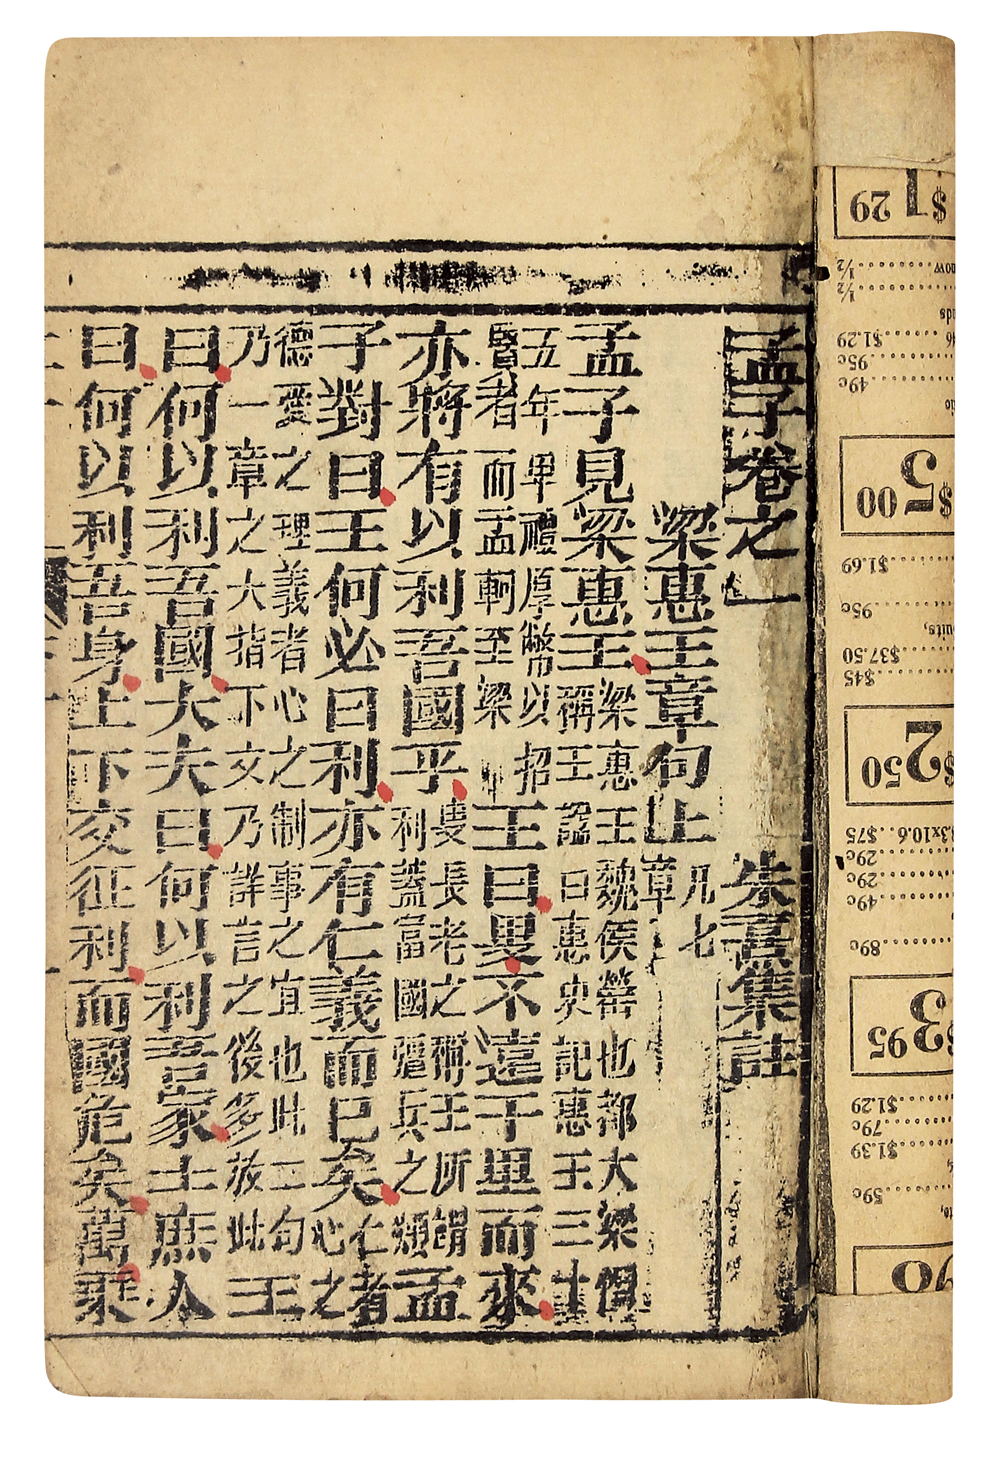 孟子卷之一 朱熹集註
梁惠王章句上 凡七章
孟子見梁惠王 梁惠王魏侯罃也都大梁僭稱王諡曰惠史記惠王三十
五年卑禮厚幣以招賢者而孟軻至梁 王曰叟不遠千里而來
亦將有以利吾國乎 叟長老之稱王所謂利蓋富國彊兵之類 孟
子對曰王何必曰利亦有仁義而已矣 仁者心之
德愛之理義者心之制事之宜也此二句乃一章之大指下文乃詳言之後多放此 王
曰何以利吾國大夫曰何以利吾家士庶人
曰何以利吾身上下交征利而國危矣萬乘
$1 29
1/2
1/2
$1.29
95c
49c
$5 00
$1.69
95c
$37.50
$45
$2 50
3.3x10.6 $75
29c
29c
49c
89c
$3 95
$1.29
79c
$1.39
59c